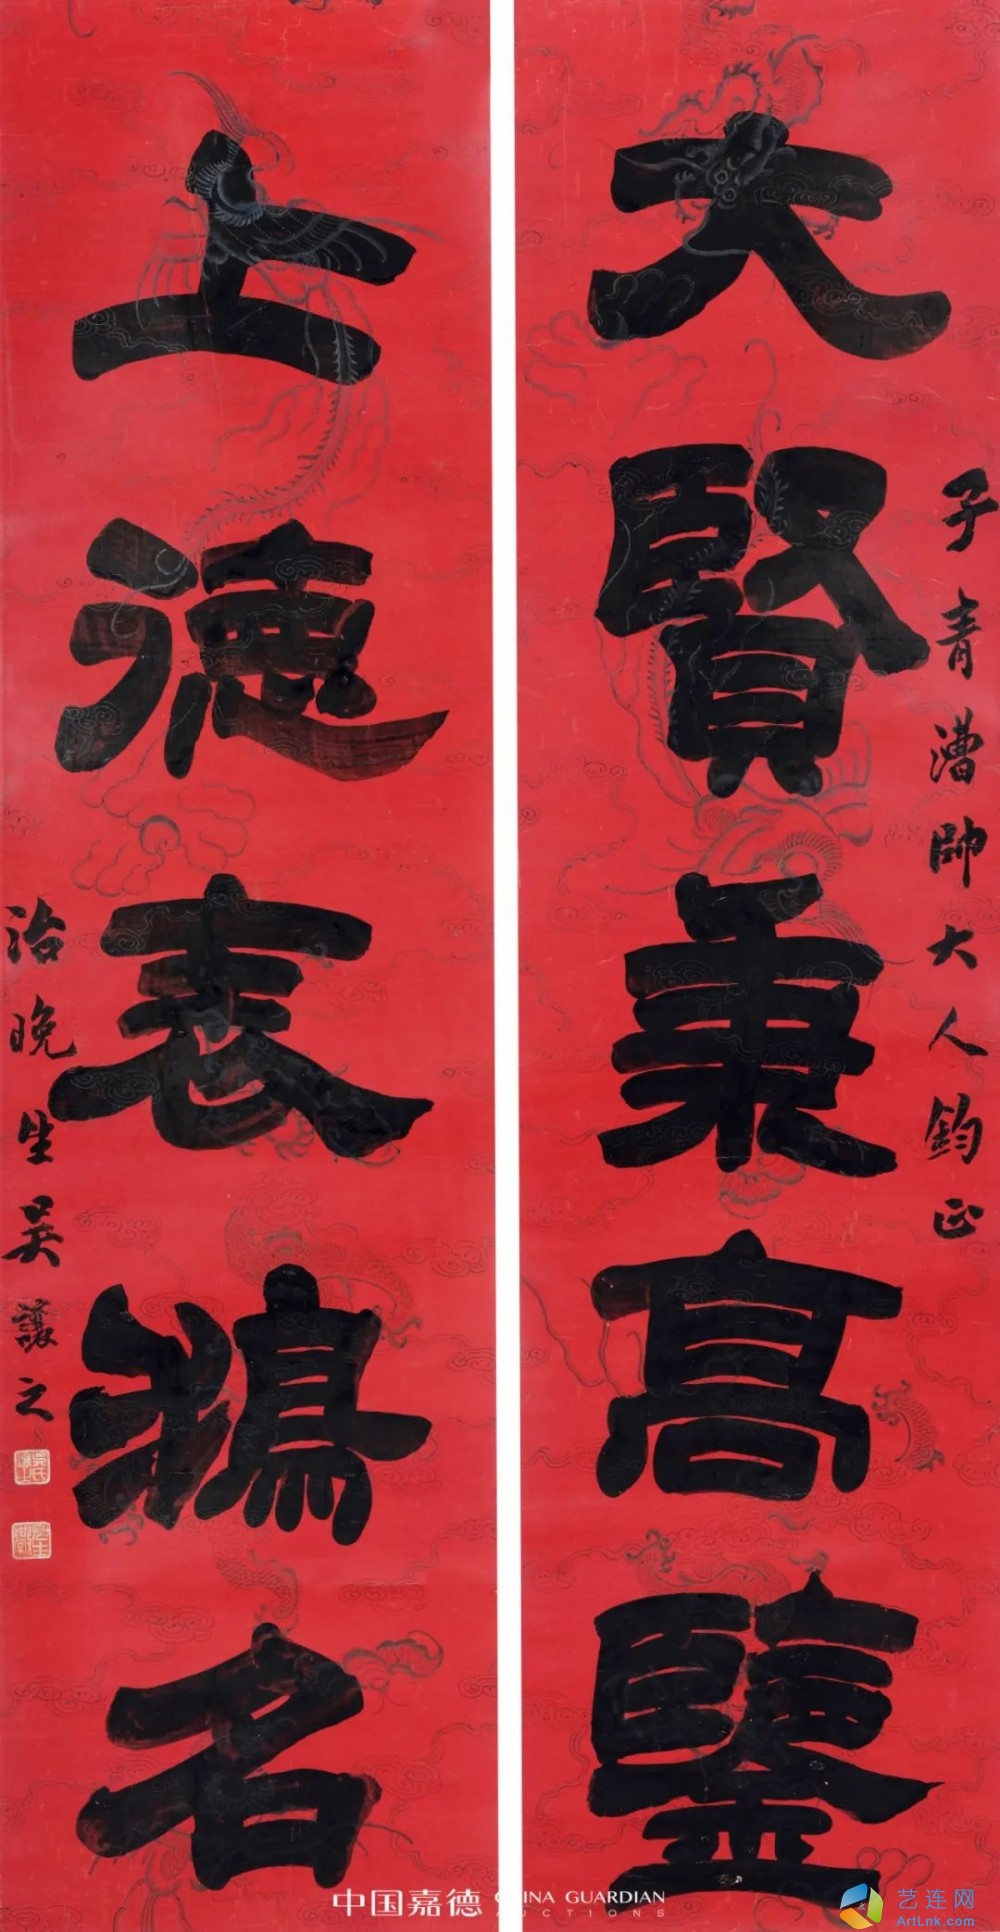 大賢秉高鑒
子青漕帥大人鈞正
上德表鴻名
治晚生吳讓之
中国嘉德 CHINA GUARDIAN AUCTIONS
艺连网
ArtLnk.com